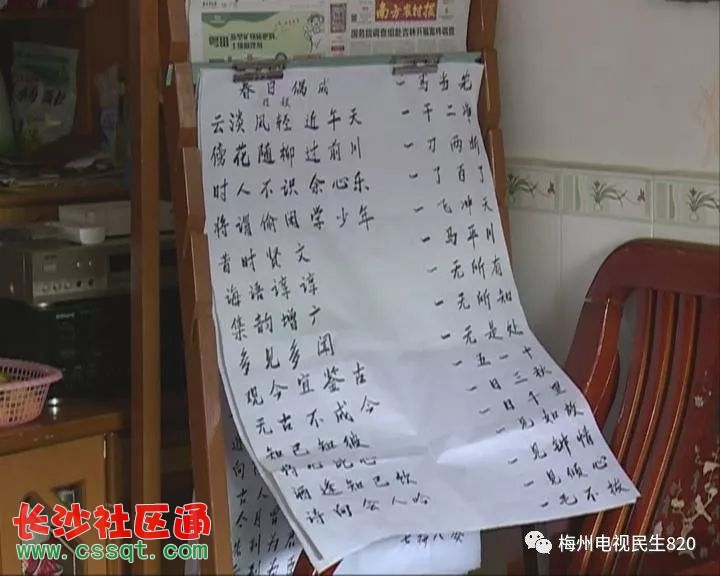 南方农村报
春日偶成
云淡风轻近午天
傍花随柳过前川
时人不识余心乐
将谓偷闲学少年
昔时贤文
诲语谆谆
集韵增广
多见多闻
观今宜鉴古
无古不成今
知己知彼
将心比心
酒逢知己饮
诗向会人吟
一马当先
一干二净
一刀两断
一了百了
一飞冲天
一马平川
一无所有
一无所知
一无是处
一五一十
一日三秋
一日千里
一见如故
一见钟情
一见倾心
一毛不拔
长沙社区通
www.cssqt.com
梅州电视民生820